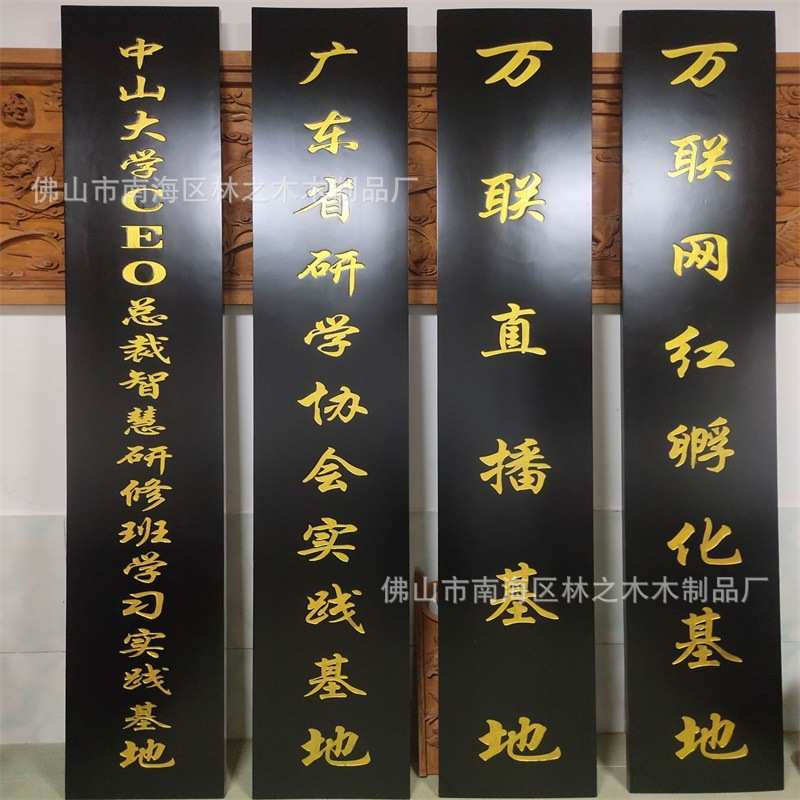 中山大学CEO总裁智慧研修班学习实践基地
广东省研学协会实践基地
万联直播基地
万联网红孵化基地
佛山市南海区林之木木制品厂
佛山市南海区林之木木制品厂